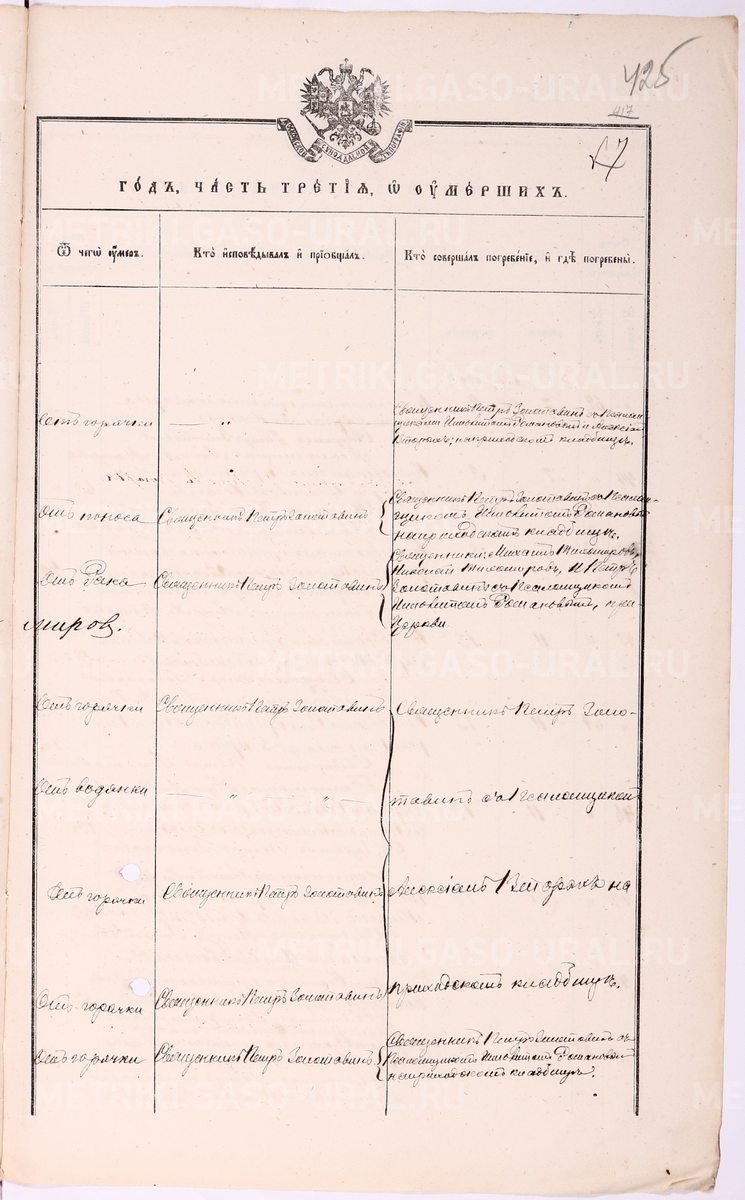 425
417
47
МОСКОВСКОЙ СѴНОДАЛЬНОЙ ТИПОГРАФІИ
ГОДЪ, ЧАСТЬ ТРЕТІЯ, Ѿ ОУМЕРШИХЪ.
Ѿ чегѡ оумеръ.
Кто исповѣдывалъ и пріобщалъ.
Кто совершалъ погребеніе, и гдѣ погребены.
Отъ горячки
— „ —
Священникъ Петръ Золотавинъ съ Псаломщиками Ипполитомъ Романовымъ и Алексѣемъ Вторыхъ; на приходскомъ кладбищѣ.
Отъ поноса
Священникъ Петръ Золотавинъ
Священникъ Петръ Золотавинъ съ Псаломщикомъ Ипполитомъ Романовымъ
на приходскомъ кладбищѣ.
Отъ Рака
Священникъ Петръ Золотавинъ
Священники: Михаилъ Тихомировъ,
Николай Тихомировъ, и Петръ
Золотавинъ съ Псаломщикомъ
Ипполитомъ Романовымъ, при
Церкви
миров.
Отъ горячки
Священникъ Петръ Золотавинъ
Священникъ Петръ Золо-
Отъ водянки
— „ — „ —
тавинъ съ Псаломщикомъ
Отъ горячки
Священникъ Петръ Золотавинъ
Алексѣемъ Вторыхъ на
Отъ горячки
Священникъ Петръ Золотавинъ
приходскомъ кладбищѣ.
Отъ горячки
Священникъ Петръ Золотавинъ
Священникъ Петръ Золотавинъ съ
Псаломщикомъ Ипполитомъ Романовымъ
на приходскомъ кладбищѣ.
METRIKI.GASO-URAL.RU